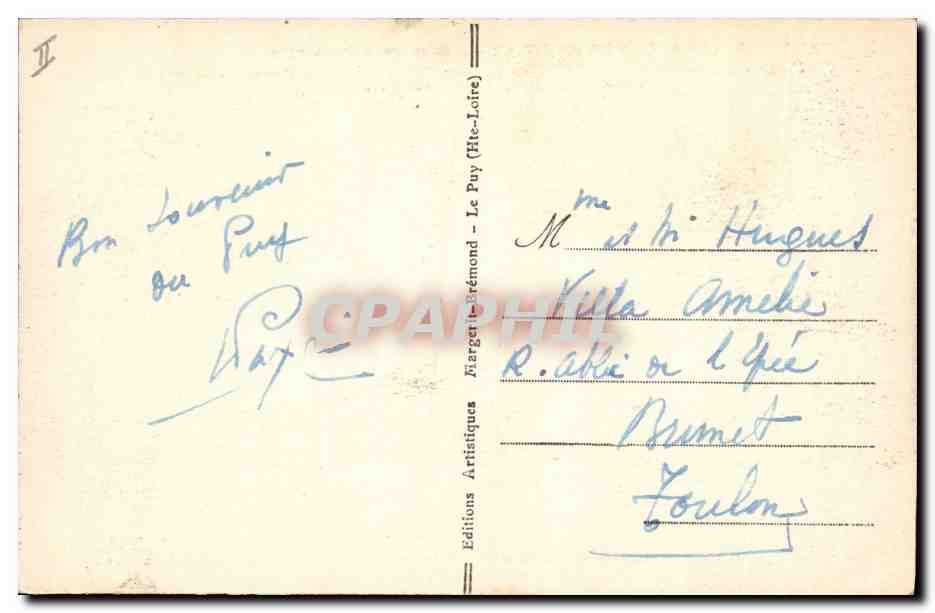 II
Bon souvenir
du Puy
Editions Artistiques Margerit-Brémond - Le Puy (Hte-Loire)
CPAPHIL
Mme et Mr Hugues
Villa Amélie
R. Abbé de l'Épée
Brunet
Toulon